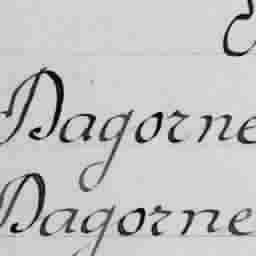 Dagorne
Dagorne